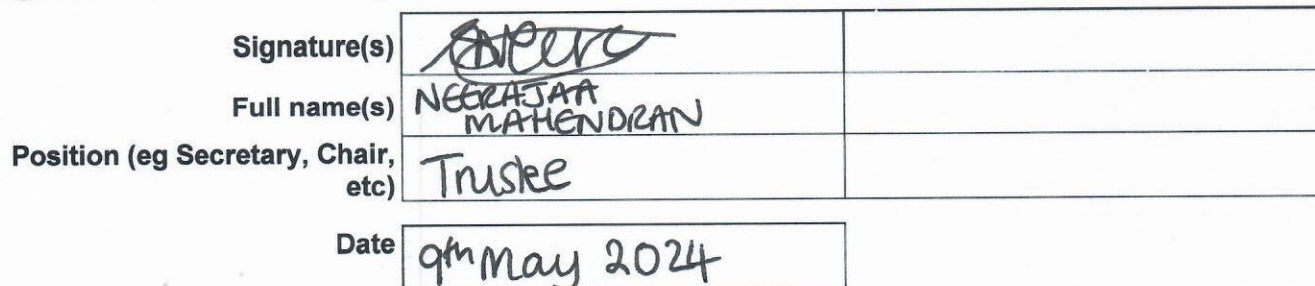 Signature(s)
Full name(s) NEERAJAA
MAHENDRAN
Position (eg Secretary, Chair,
etc) Trustee
Date 9th May 2024